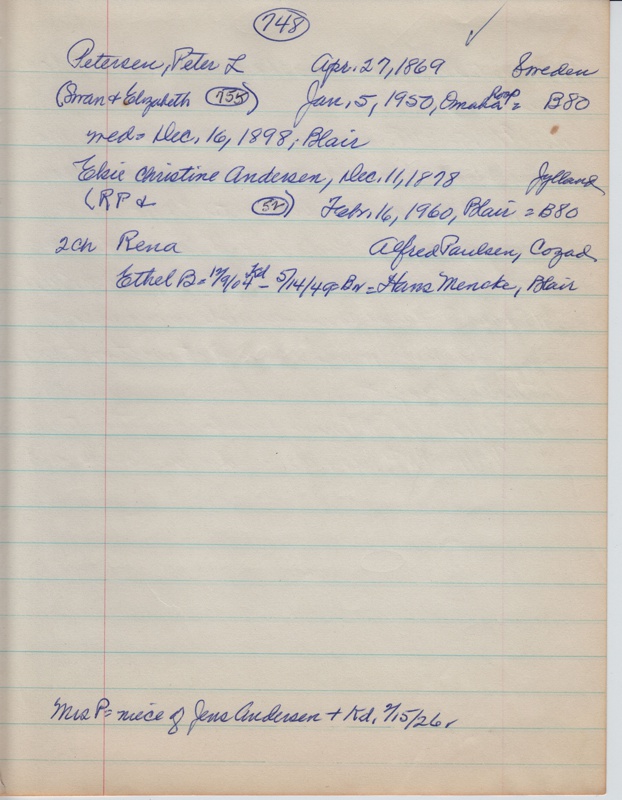 748 ✓
Petersen, Peter L Apr. 27, 1869 Sweden
(Swan & Elizabeth 755) Jan. 5, 1950, Omaha Hosp = B80
med = Dec. 16, 1898, Blair
Elsie Christine Andersen, Dec. 11, 1878 Jylland
(RP & 52) Febr. 16, 1960, Blair = B80
2 ch Rena Alfred Paulsen, Cozad
Ethel B = 12/9/04 - 5/14/49 = Br = Hans Mencke, Blair
Mrs P = niece of Jens Andersen + Kd, /15/26